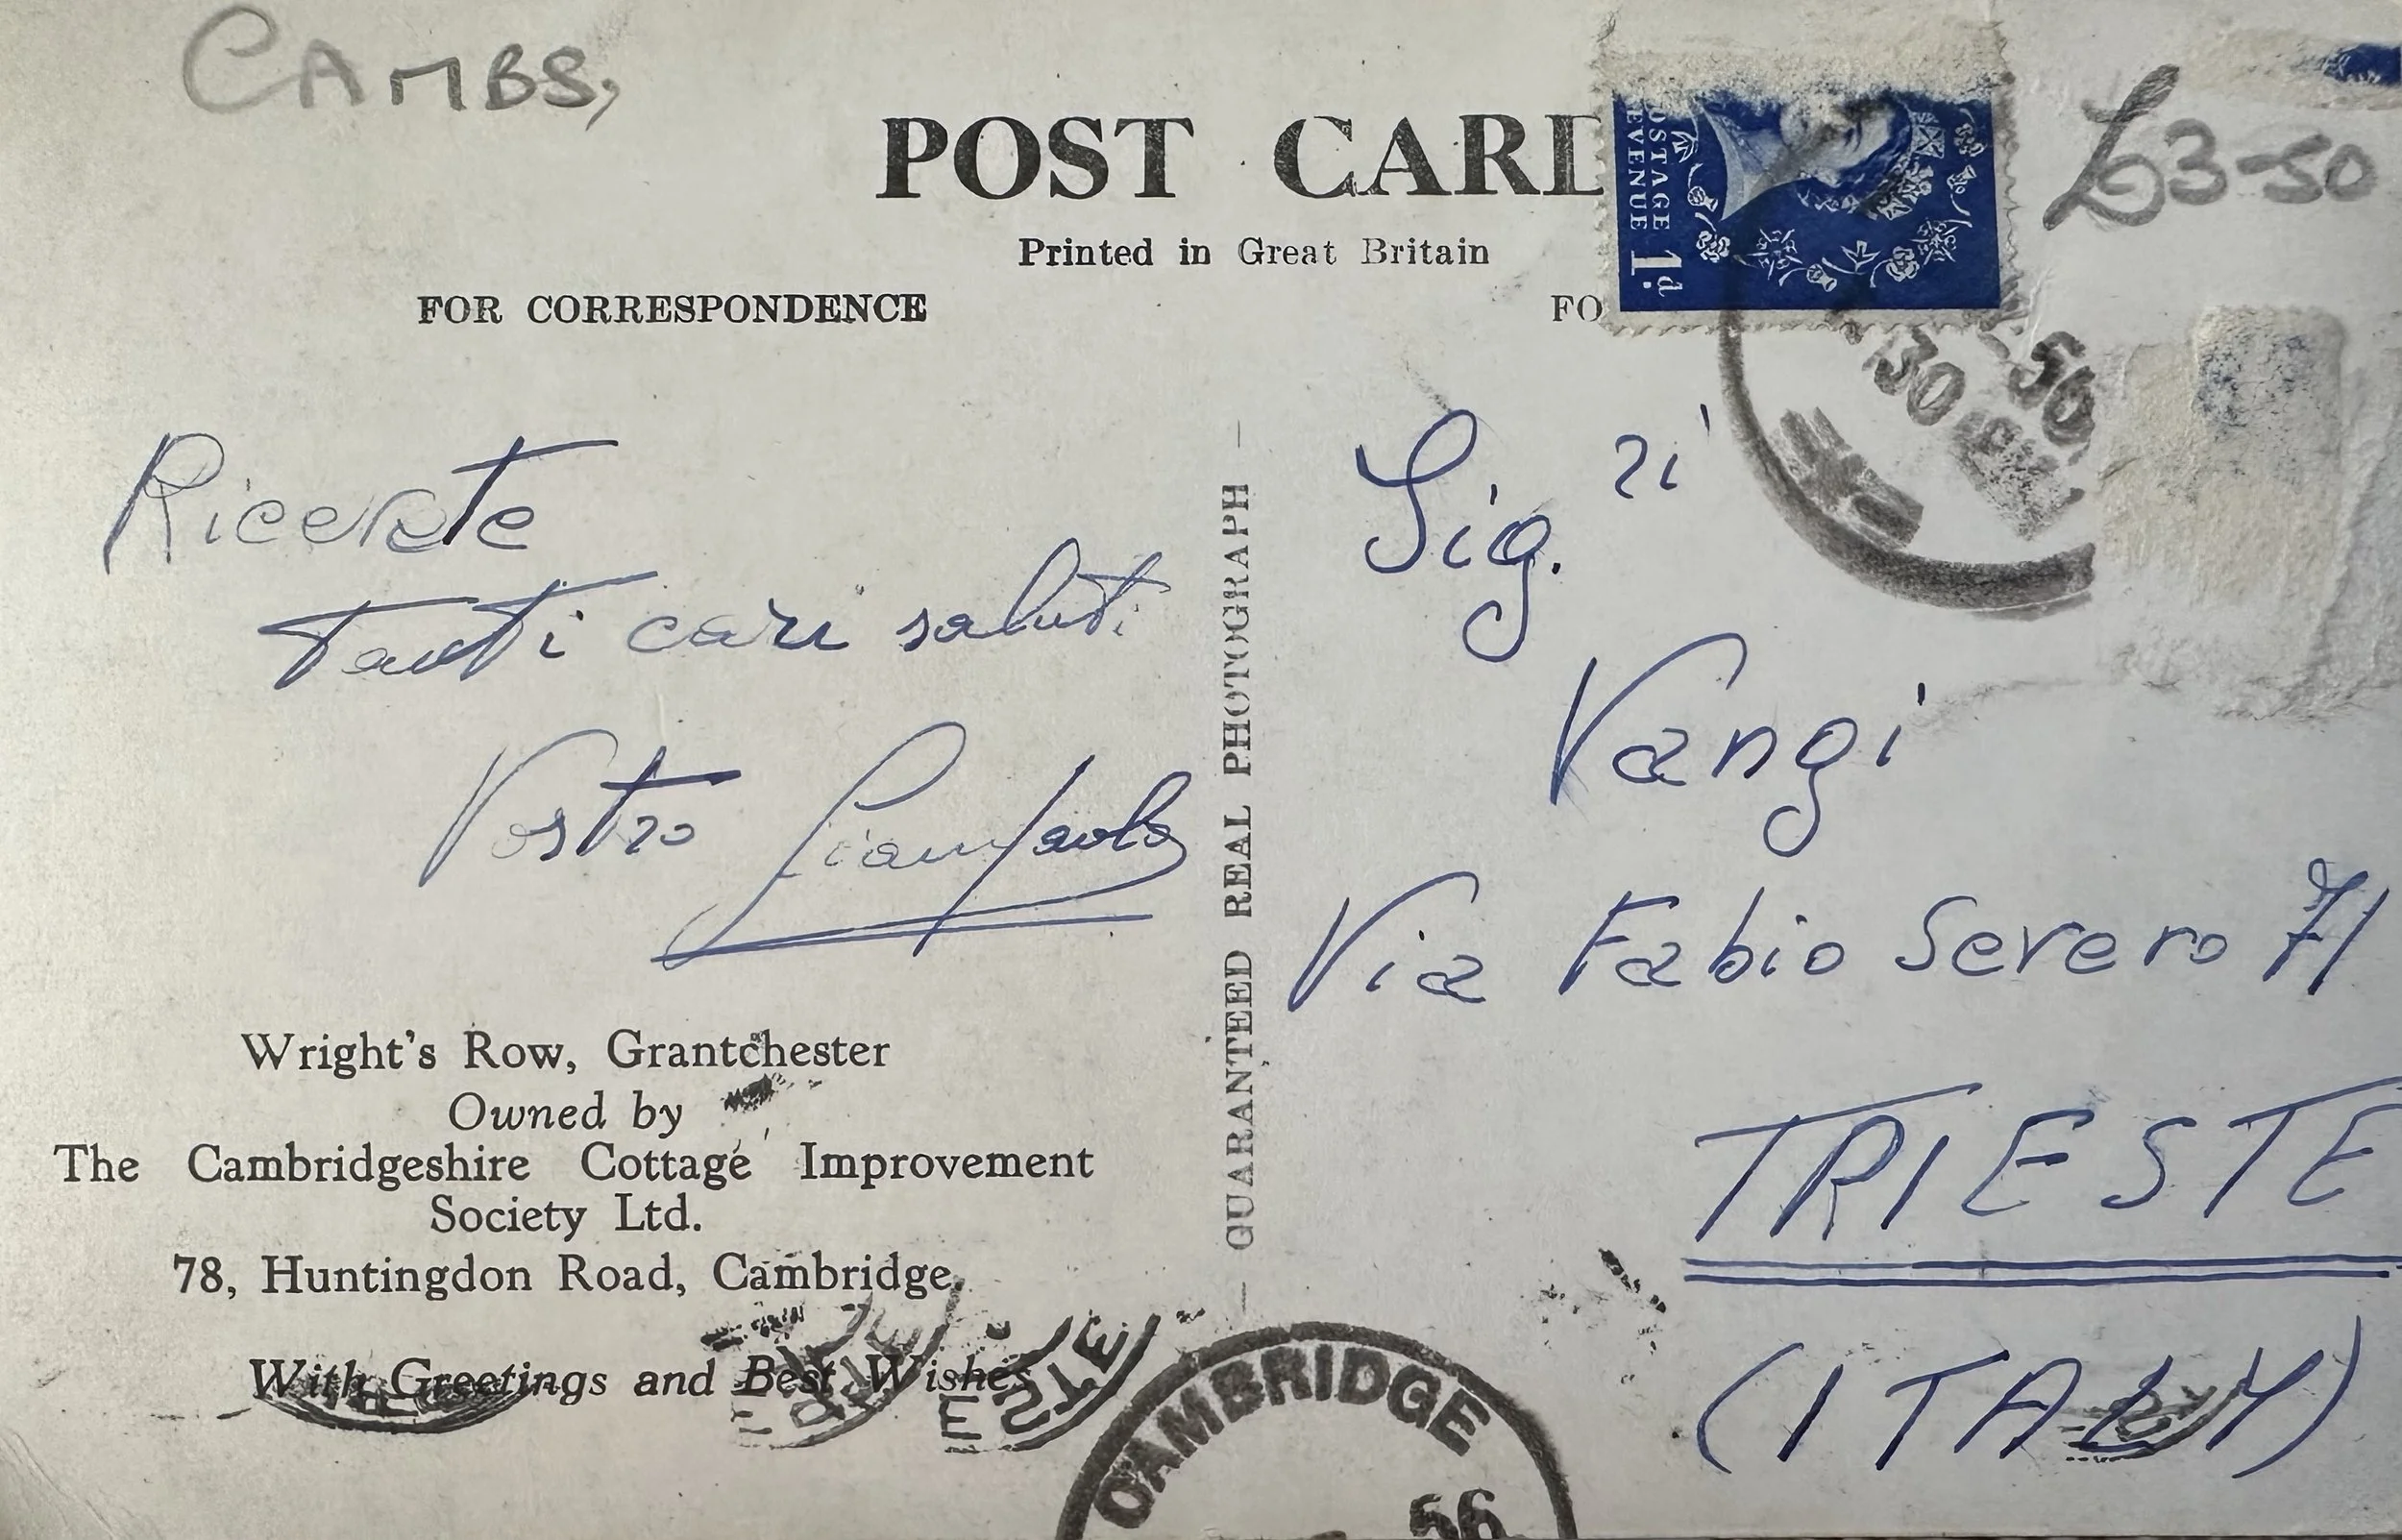 CAMBS,
£3-50
POST CARD
Printed in Great Britain
POSTAGE
REVENUE
1d.
FOR CORRESPONDENCE
FO
30
56
Ricevete
Tanti cari saluti
Vostro Giampaolo
GUARANTEED REAL PHOTOGRAPH
Sig.ri
Vangi
Via Fabio Severo 71
TRIESTE
(ITALY)
Wright's Row, Grantchester
Owned by
The Cambridgeshire Cottage Improvement
Society Ltd.
78, Huntingdon Road, Cambridge
With Greetings and Best Wishes
CAMBRIDGE
56